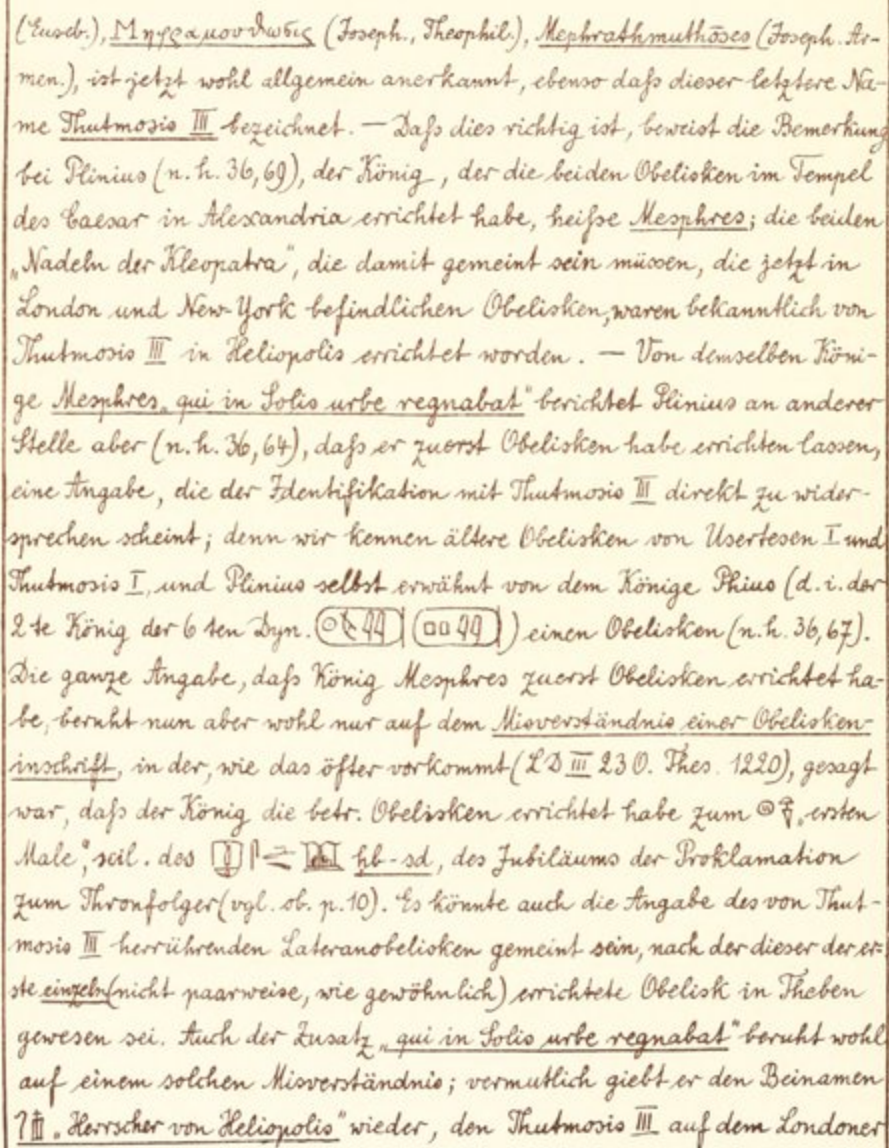 (Euseb.), Μηφραμουθωσις (Joseph., Theophil.), Mephrathmuthōses (Joseph. Ar-
men.), ist jetzt wohl allgemein anerkannt, ebenso daſs dieser letztere Na-
me Thutmosis III bezeichnet. — Daſs dies richtig ist, beweist die Bemerkung
bei Plinius (n. h. 36, 69), der König, der die beiden Obelisken im Tempel
des Caesar in Alexandria errichtet habe, heiſse Mesphres; die beiden
„Nadeln der Kleopatra“, die damit gemeint sein müssen, die jetzt in
London und New-York befindlichen Obelisken, waren bekanntlich von
Thutmosis III in Heliopolis errichtet worden. — Von demselben Köni-
ge Mesphres „qui in Solis urbe regnabat“ berichtet Plinius an anderer
Stelle aber (n. h. 36, 64), daſs er zuerst Obelisken habe errichten lassen,
eine Angabe, die der Identifikation mit Thutmosis III direkt zu wider-
sprechen scheint; denn wir kennen ältere Obelisken von Usertesen I und
Thutmosis I, und Plinius selbst erwähnt von dem Könige Phius (d. i. der
2te König der 6ten Dyn. ) einen Obelisken (n. h. 36, 67).
Die ganze Angabe, daſs König Mesphres zuerst Obelisken errichtet ha-
be, beruht nun aber wohl nur auf dem Misverständnis einer Obelisken-
inschrift, in der, wie das öfter vorkommt (LD III 230. Thes. 1220), gesagt
war, daſs der König die betr. Obelisken errichtet habe zum „ersten
Male“, scil. des ḥb-sd, des Jubiläums der Proklamation
zum Thronfolger (vgl. ob. p. 10). Es könnte auch die Angabe des von Thut-
mosis III herrührenden Lateranobelisken gemeint sein, nach der dieser der er-
ste einzeln (nicht paarweise, wie gewöhnlich) errichtete Obelisk in Theben
gewesen sei. Auch der Zusatz „qui in Solis urbe regnabat“ beruht wohl
auf einem solchen Misverständnis; vermutlich giebt er den Beinamen
„Herrscher von Heliopolis“ wieder, den Thutmosis III auf dem Londoner